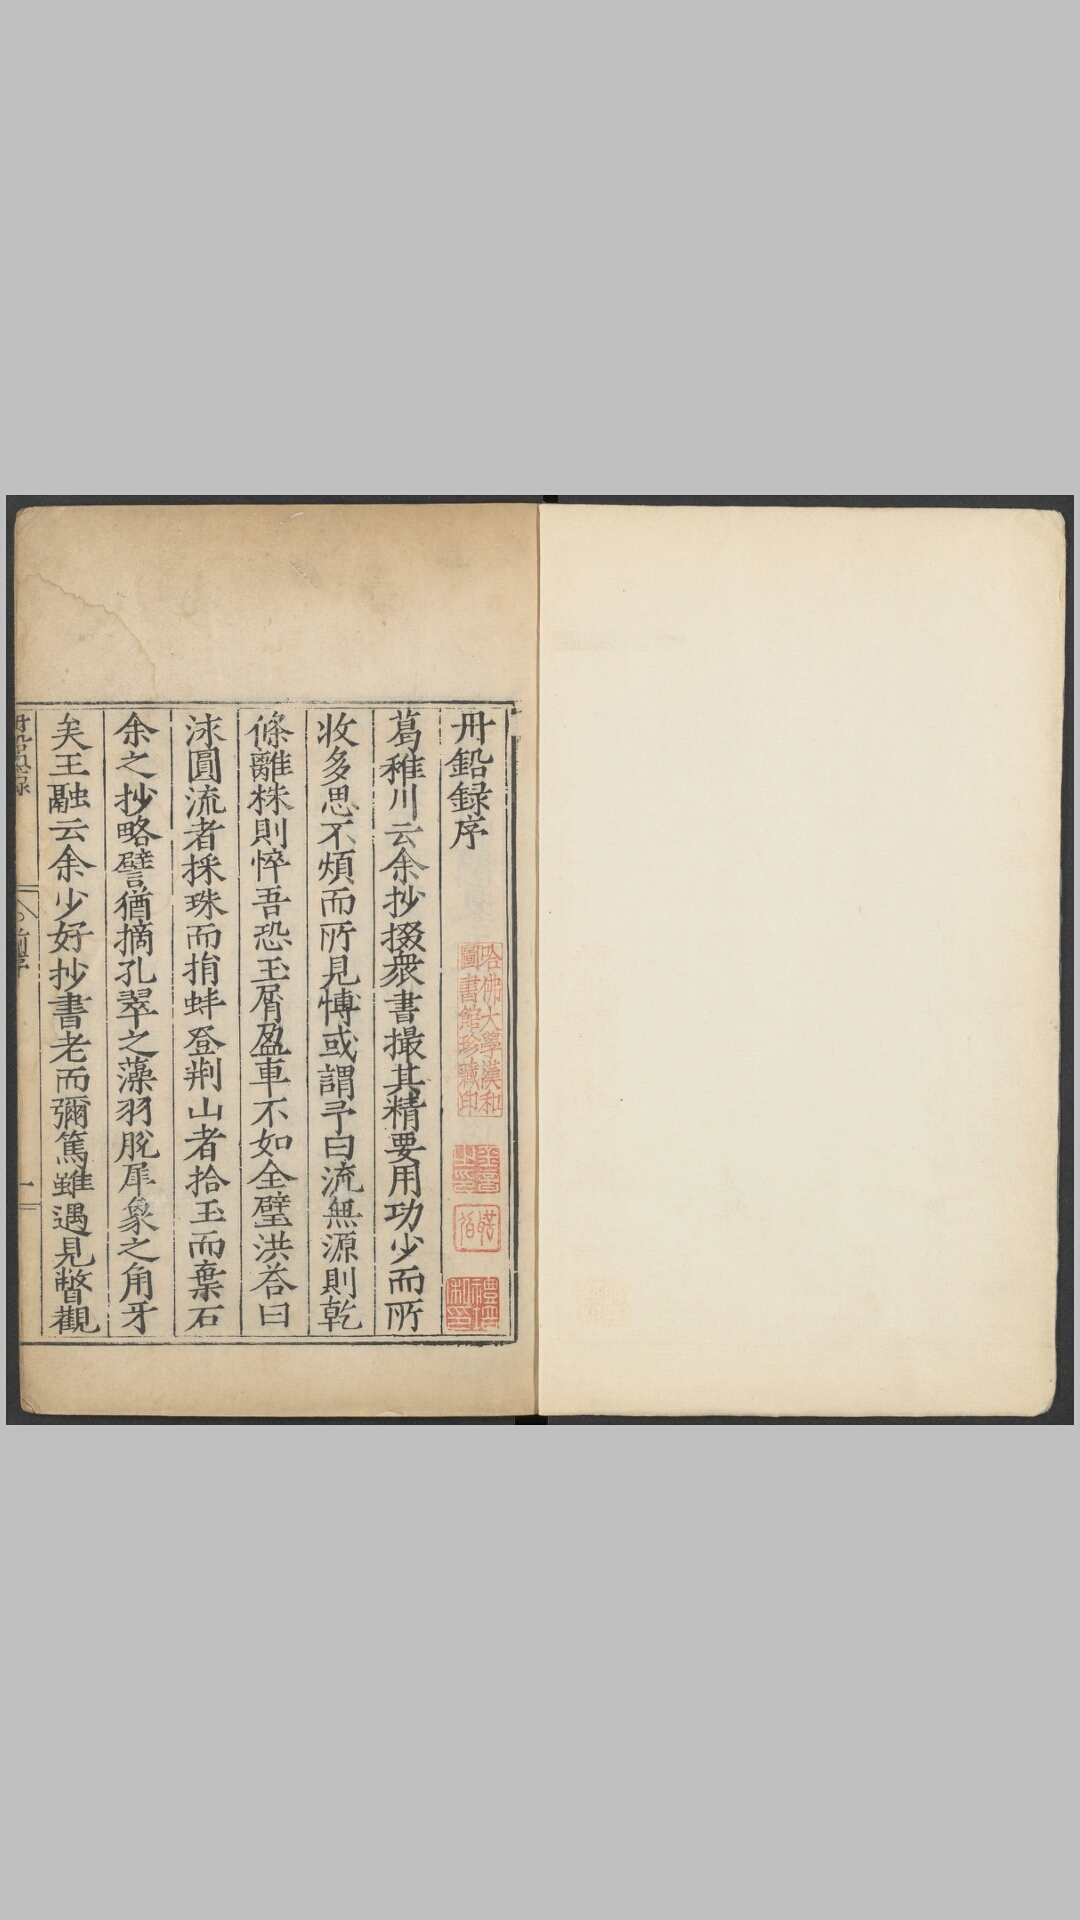 丹鉛録序
葛稚川云余抄掇衆書撮其精要用功少而所
收多思不煩而所見博或謂予曰流無源則乾
條離株則悴吾恐玉屑盈車不如全璧洪荅曰
泳圓流者採珠而捐蚌登荆山者拾玉而棄石
余之抄略譬猶摘孔翠之藻羽脫犀象之角牙
矣王融云余少好抄書老而彌篤雖遇見瞥觀
哈佛大學漢和
圖書館珍藏印
前序
一